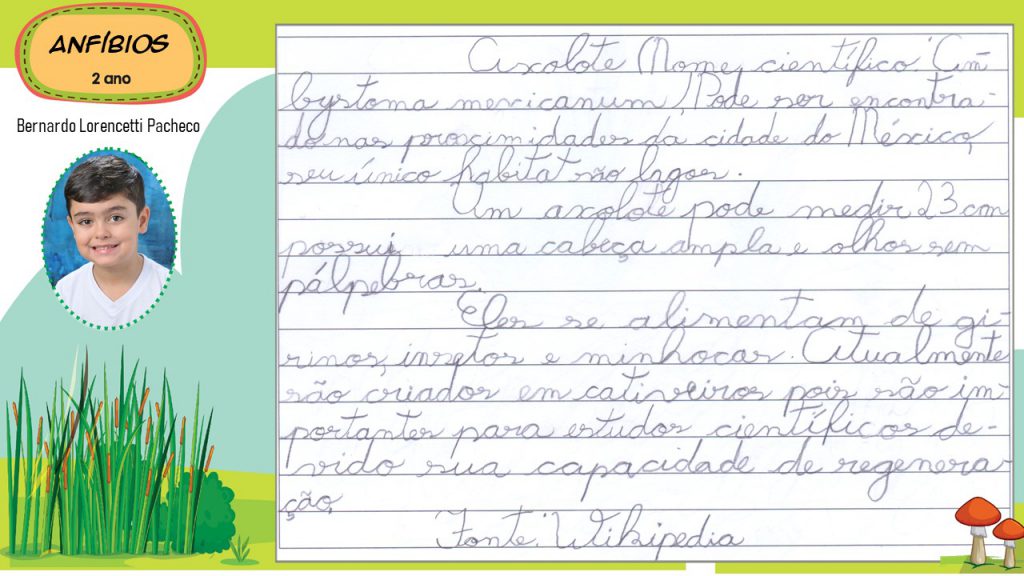 ANFÍBIOS
2 ano
Bernardo Lorencetti Pacheco
Axolote Nome científico: Am-
bystoma mexicanum, Pode ser encontra-
do nas proximidades da cidade do México,
seu único habitat são lagos.
Um axolote pode medir 23 cm
possui uma cabeça ampla e olhos sem
pálpebras.
Eles se alimentam de gi-
rinos, insetos e minhocas. Atualmente
são criados em cativeiros pois são im-
portantes para estudos científicos de-
vido sua capacidade de regenera-
ção.
Fonte: Wikipedia